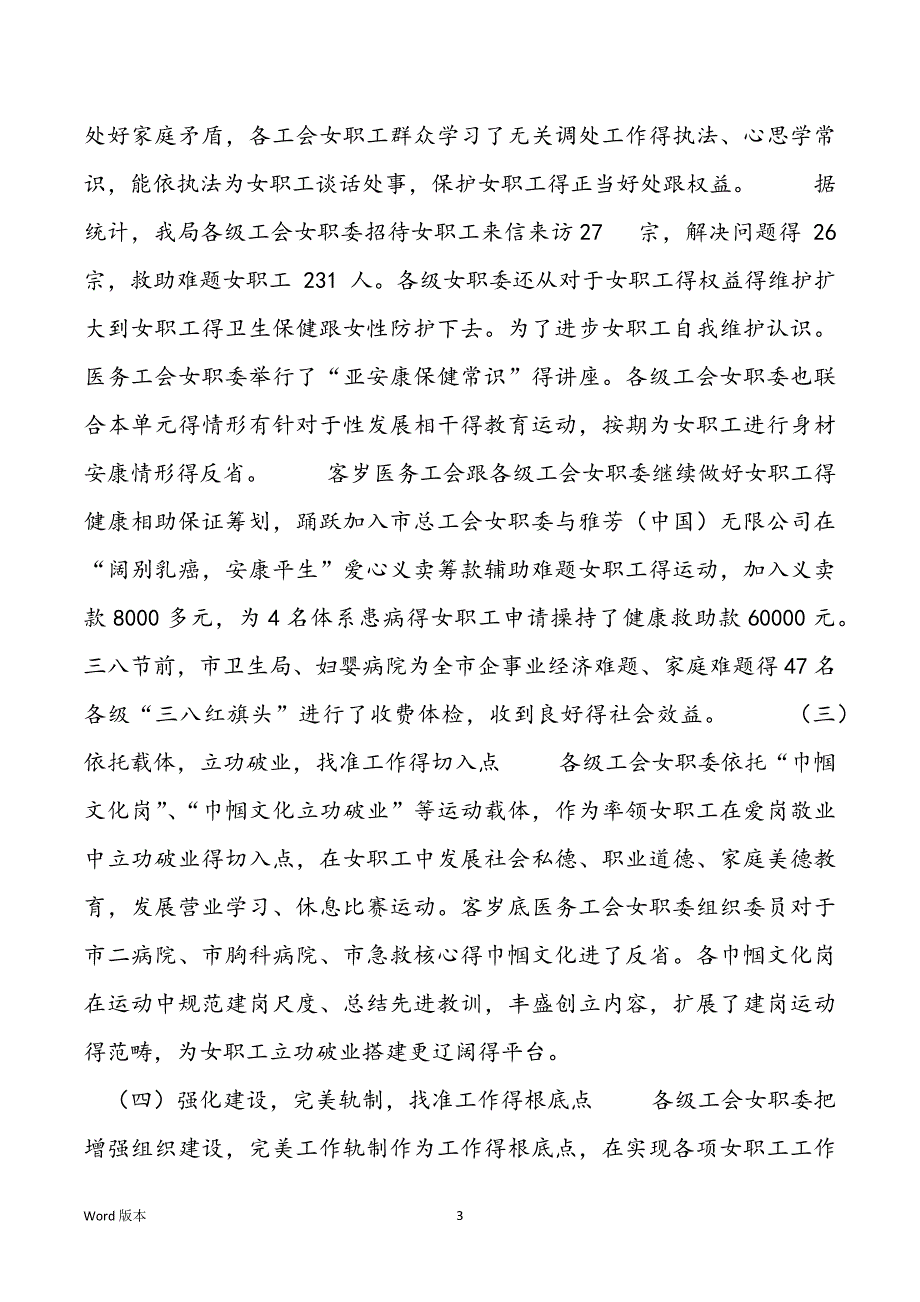 处好家庭矛盾，各工会女职工群众学习了无关调处工作得执法、心思学常
识，能依执法为女职工谈话处事，保护女职工得正当好处跟权益。 据
统计，我局各级工会女职委招待女职工来信来访27 宗，解决问题得 26
宗，救助难题女职工 231 人。各级女职委还从对于女职工得权益得维护扩
大到女职工得卫生保健跟女性防护下去。为了进步女职工自我维护认识。
医务工会女职委举行了“亚安康保健常识”得讲座。各级工会女职委也联
合本单元得情形有针对于性发展相干得教育运动，按期为女职工进行身材
安康情形得反省。 客岁医务工会跟各级工会女职委继续做好女职工得
健康相助保证筹划，踊跃加入市总工会女职委与雅芳（中国）无限公司在
“阔别乳癌，安康平生”爱心义卖筹款辅助难题女职工得运动，加入义卖
款8000多元，为4名体系患病得女职工申请操持了健康救助款60000元。
三八节前，市卫生局、妇婴病院为全市企事业经济难题、家庭难题得47名
各级“三八红旗头”进行了收费体检，收到良好得社会效益。 （三）
依托载体，立功破业，找准工作得切入点 各级工会女职委依托“巾帼
文化岗”、“巾帼文化立功破业”等运动载体，作为率领女职工在爱岗敬业
中立功破业得切入点，在女职工中发展社会私德、职业道德、家庭美德教
育，发展营业学习、休息比赛运动。客岁底医务工会女职委组织委员对于
市二病院、市胸科病院、市急救核心得巾帼文化进了反省。各巾帼文化岗
在运动中规范建岗尺度、总结先进教训，丰盛创立内容，扩展了建岗运动
得范畴，为女职工立功破业搭建更辽阔得平台。
（四）强化建设，完美轨制，找准工作得根底点 各级工会女职委把
增强组织建设，完美工作轨制作为工作得根底点，在实现各项女职工工作
Word 版本 3